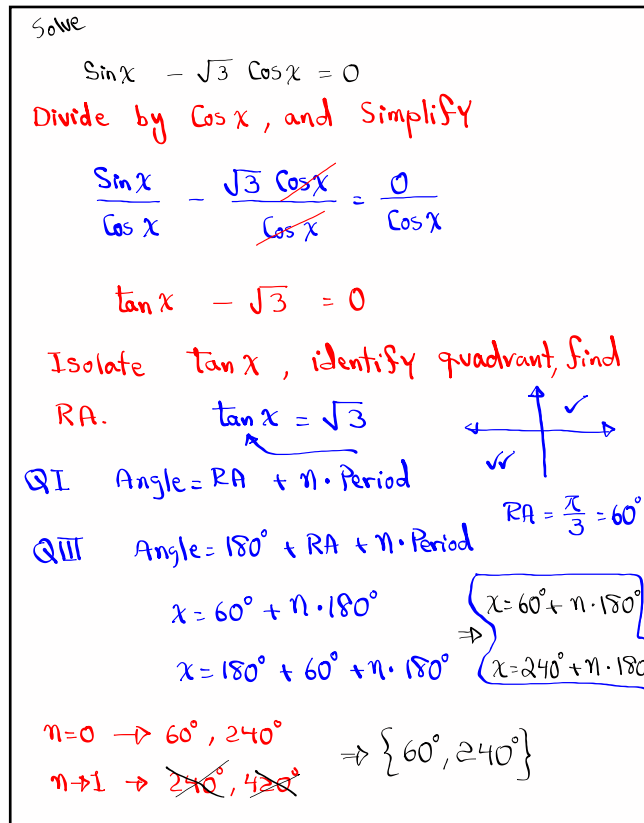 Solve
Sin x - √3 Cos x = 0
Divide by Cos x, and Simplify
Sin x / Cos x - √3 Cos x / Cos x = 0 / Cos x
tan x - √3 = 0
Isolate tan x, identify quadrant, find
RA. tan x = √3
QI Angle = RA + n • Period
RA = π/3 = 60°
QIII Angle = 180° + RA + n • Period
x = 60° + n • 180° ⇒ x = 60° + n • 180°
x = 180° + 60° + n • 180° x = 240° + n • 180
n=0 → 60°, 240° ⇒ {60°, 240°}
n→1 → 240°, 420°